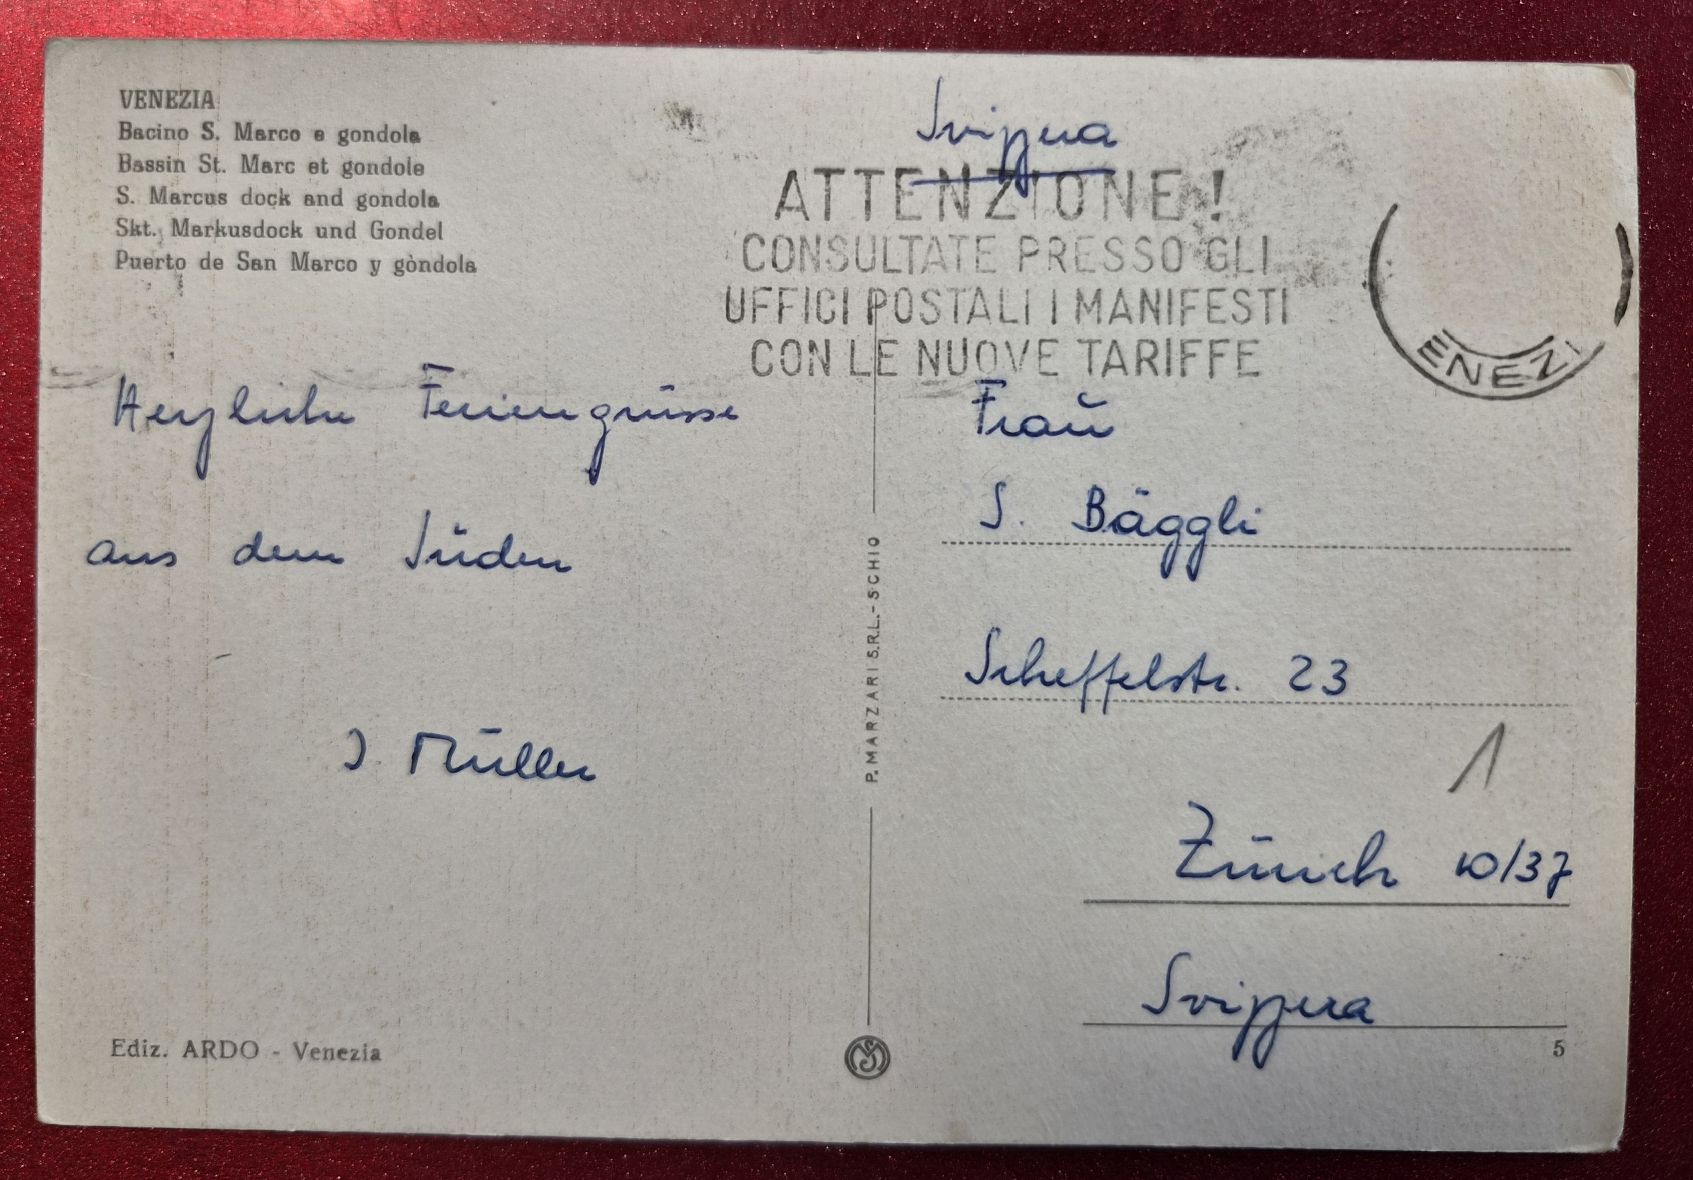 VENEZIA
Bacino S. Marco e gondola
Bassin St. Marc et gondole
S. Marcus dock and gondola
Skt. Markusdock und Gondel
Puerto de San Marco y gòndola
Svizzera
ATTENZIONE!
CONSULTATE PRESSO GLI
UFFICI POSTALI I MANIFESTI
CON LE NUOVE TARIFFE
ENEZI
Herzliche Feriengrüsse
aus dem Süden
J. Müller
P. MARZARI S.R.L.-SCHIO
Frau
S. Bäggli
Scheffelstr. 23
1
Zürich 10/37
Svizzera
Ediz. ARDO - Venezia
5